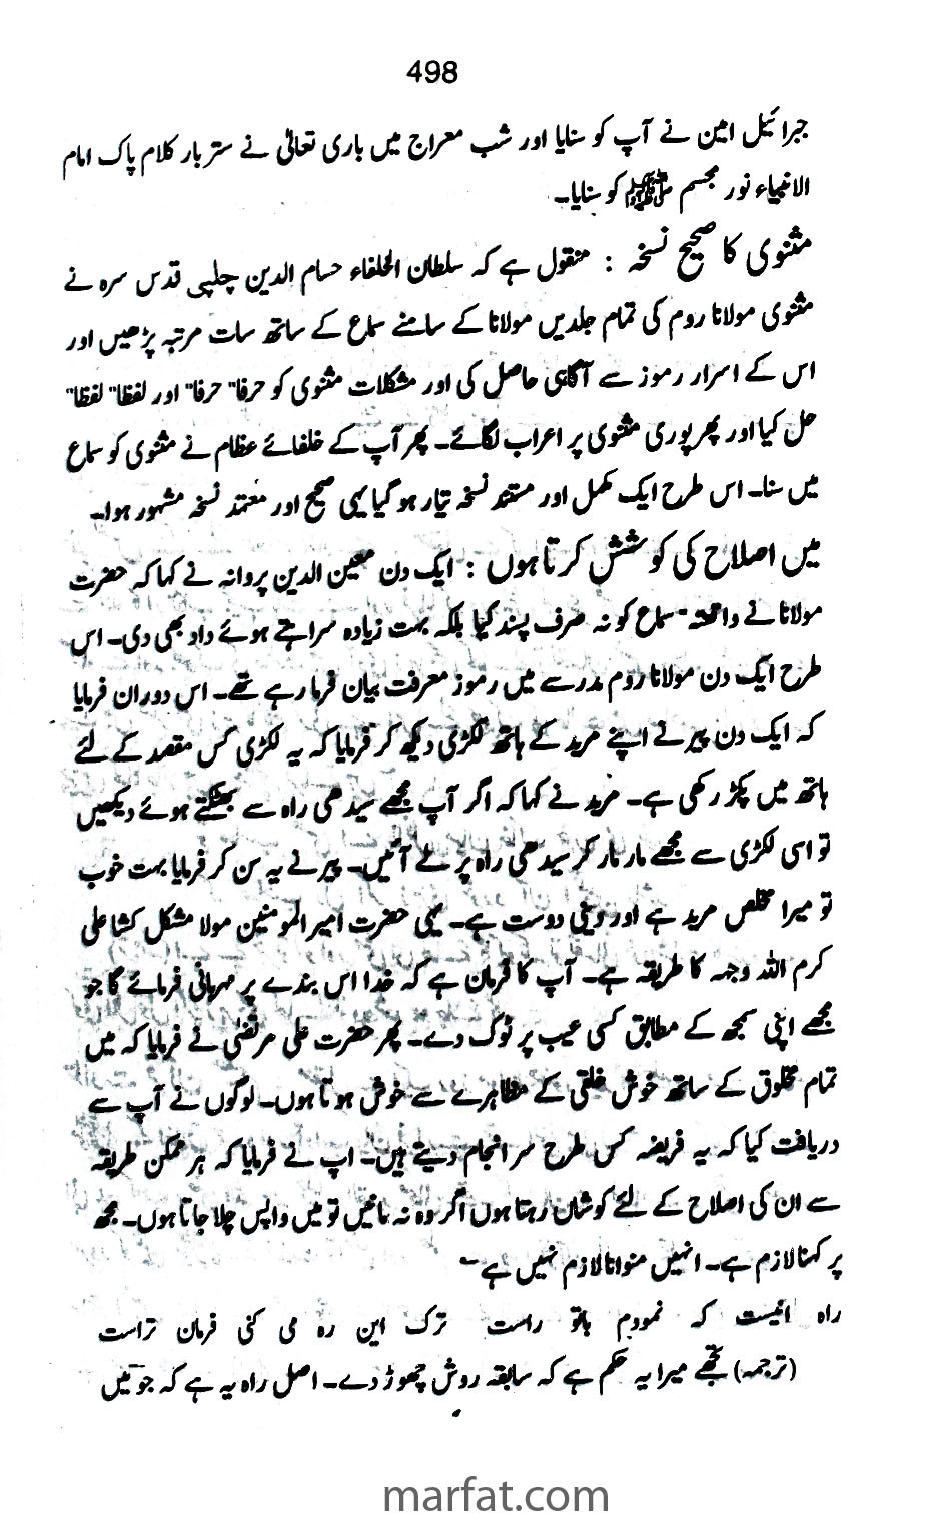 498
جبرائیل امین نے آپ کو سنایا اور شب معراج میں باری تعالیٰ نے ستر بار کلام پاک امام
الانبیاء نور مجسم ﷺ کو سنایا۔
مثنوی کا صحیح نسخہ : منقول ہے کہ سلطان الخلفاء حسام الدین چلپی قدس سرہ نے
مثنوی مولانا روم کی تمام جلدیں مولانا کے سامنے سماع کے ساتھ سات مرتبہ پڑھیں اور
اس کے اسرار رموز سے آگاہی حاصل کی اور مشکلات مثنوی کو حرفا" حرفا" اور لفظا" لفظا"
حل کیا اور پھر پوری مثنوی پر اعراب لگائے۔ پھر آپ کے خلفائے عظام نے مثنوی کو سماع
میں سنا۔ اس طرح ایک مکمل اور مستند نسخہ تیار ہو گیا یہی صحیح اور معتمد نسخہ مشہور ہوا۔
میں اصلاح کی کوشش کرتا ہوں : ایک دن معین الدین پروانہ نے کہا کہ حضرت
مولانا نے سماع کو نہ صرف پسند کیا بلکہ بہت زیادہ سراہتے ہوئے داد بھی دی۔ اس
طرح ایک دن مولانا روم مدرسے میں رموز معرفت بیان فرما رہے تھے۔ اس دوران فرمایا
کہ ایک دن پیر نے اپنے مرید کے ہاتھ لکڑی دیکھ کر فرمایا کہ یہ لکڑی کس مقصد کے لئے
ہاتھ میں پکڑ رکھی ہے۔ مرید نے کہا کہ اگر آپ مجھے سیدھی راہ سے بھٹکتے ہوئے دیکھیں
تو اسی لکڑی سے مجھے مار مار کر سیدھی راہ پر لے آئیں۔ پیر نے یہ سن کر فرمایا بہت خوب
تو میرا مخلص مرید ہے اور دینی دوست ہے۔ یہی حضرت امیر المومنین مولا مشکل کشا علی
کرم اللہ وجہہ کا طریقہ ہے۔ آپ کا فرمان ہے کہ خدا اس بندے پر مہربانی فرمائے گا جو
مجھے اپنی سمجھ کے مطابق کسی عیب پر ٹوک دے۔ پھر حضرت علی مرتضیٰ نے فرمایا کہ میں
تمام مخلوق کے ساتھ خوش خلقی کے مظاہرے سے خوش ہوتا ہوں۔ لوگوں نے آپ سے
دریافت کیا کہ یہ فریضہ کس طرح سرانجام دیتے ہیں۔ اپ نے فرمایا کہ ہر ممکن طریقہ
سے ان کی اصلاح کے لئے کوشاں رہتا ہوں اگر وہ نہ مانیں تو میں واپس چلا جاتا ہوں۔ مجھ
پر کہنا لازم ہے۔ انہیں منوانا لازم نہیں ہے
راہ انیست کہ نمودم باتو راست ترک این رہ می کنی فرمان تراست
(ترجمہ) تجھے میرا یہ حکم ہے کہ سابقہ روش چھوڑ دے۔ اصل راہ یہ ہے کہ جو میں
marfat.com